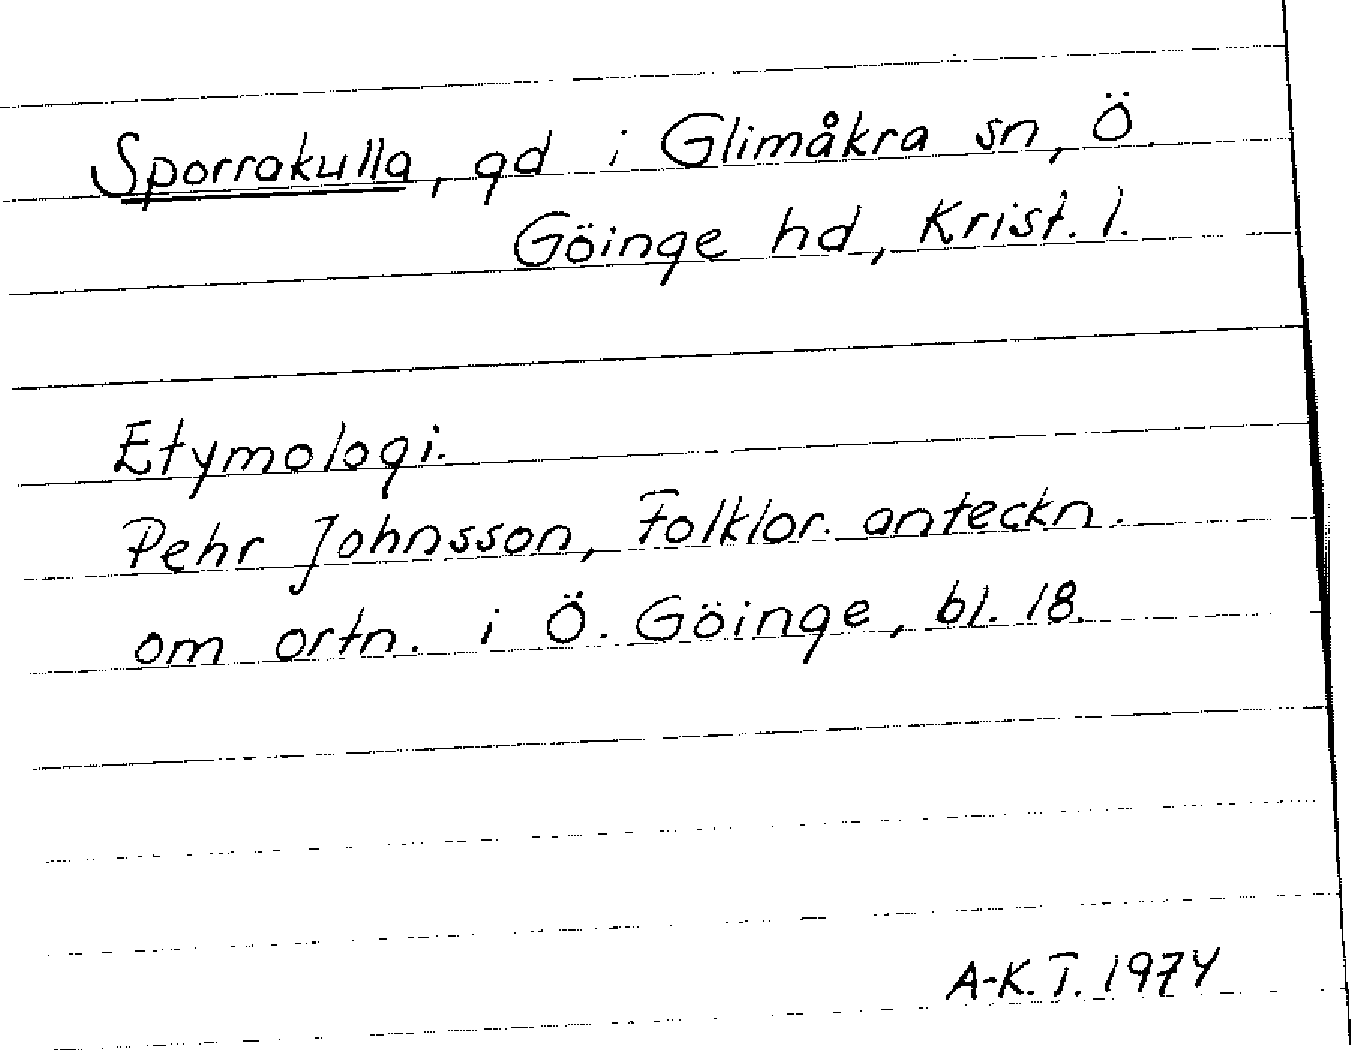 Sporrakulla, gd i Glimåkra sn, Ö.
Göinge hd, Krist. l.
Etymologi.
Pehr Johnsson, Folklor. anteckn.
om ortn. i Ö. Göinge, bl. 18.
A-K. T. 1974